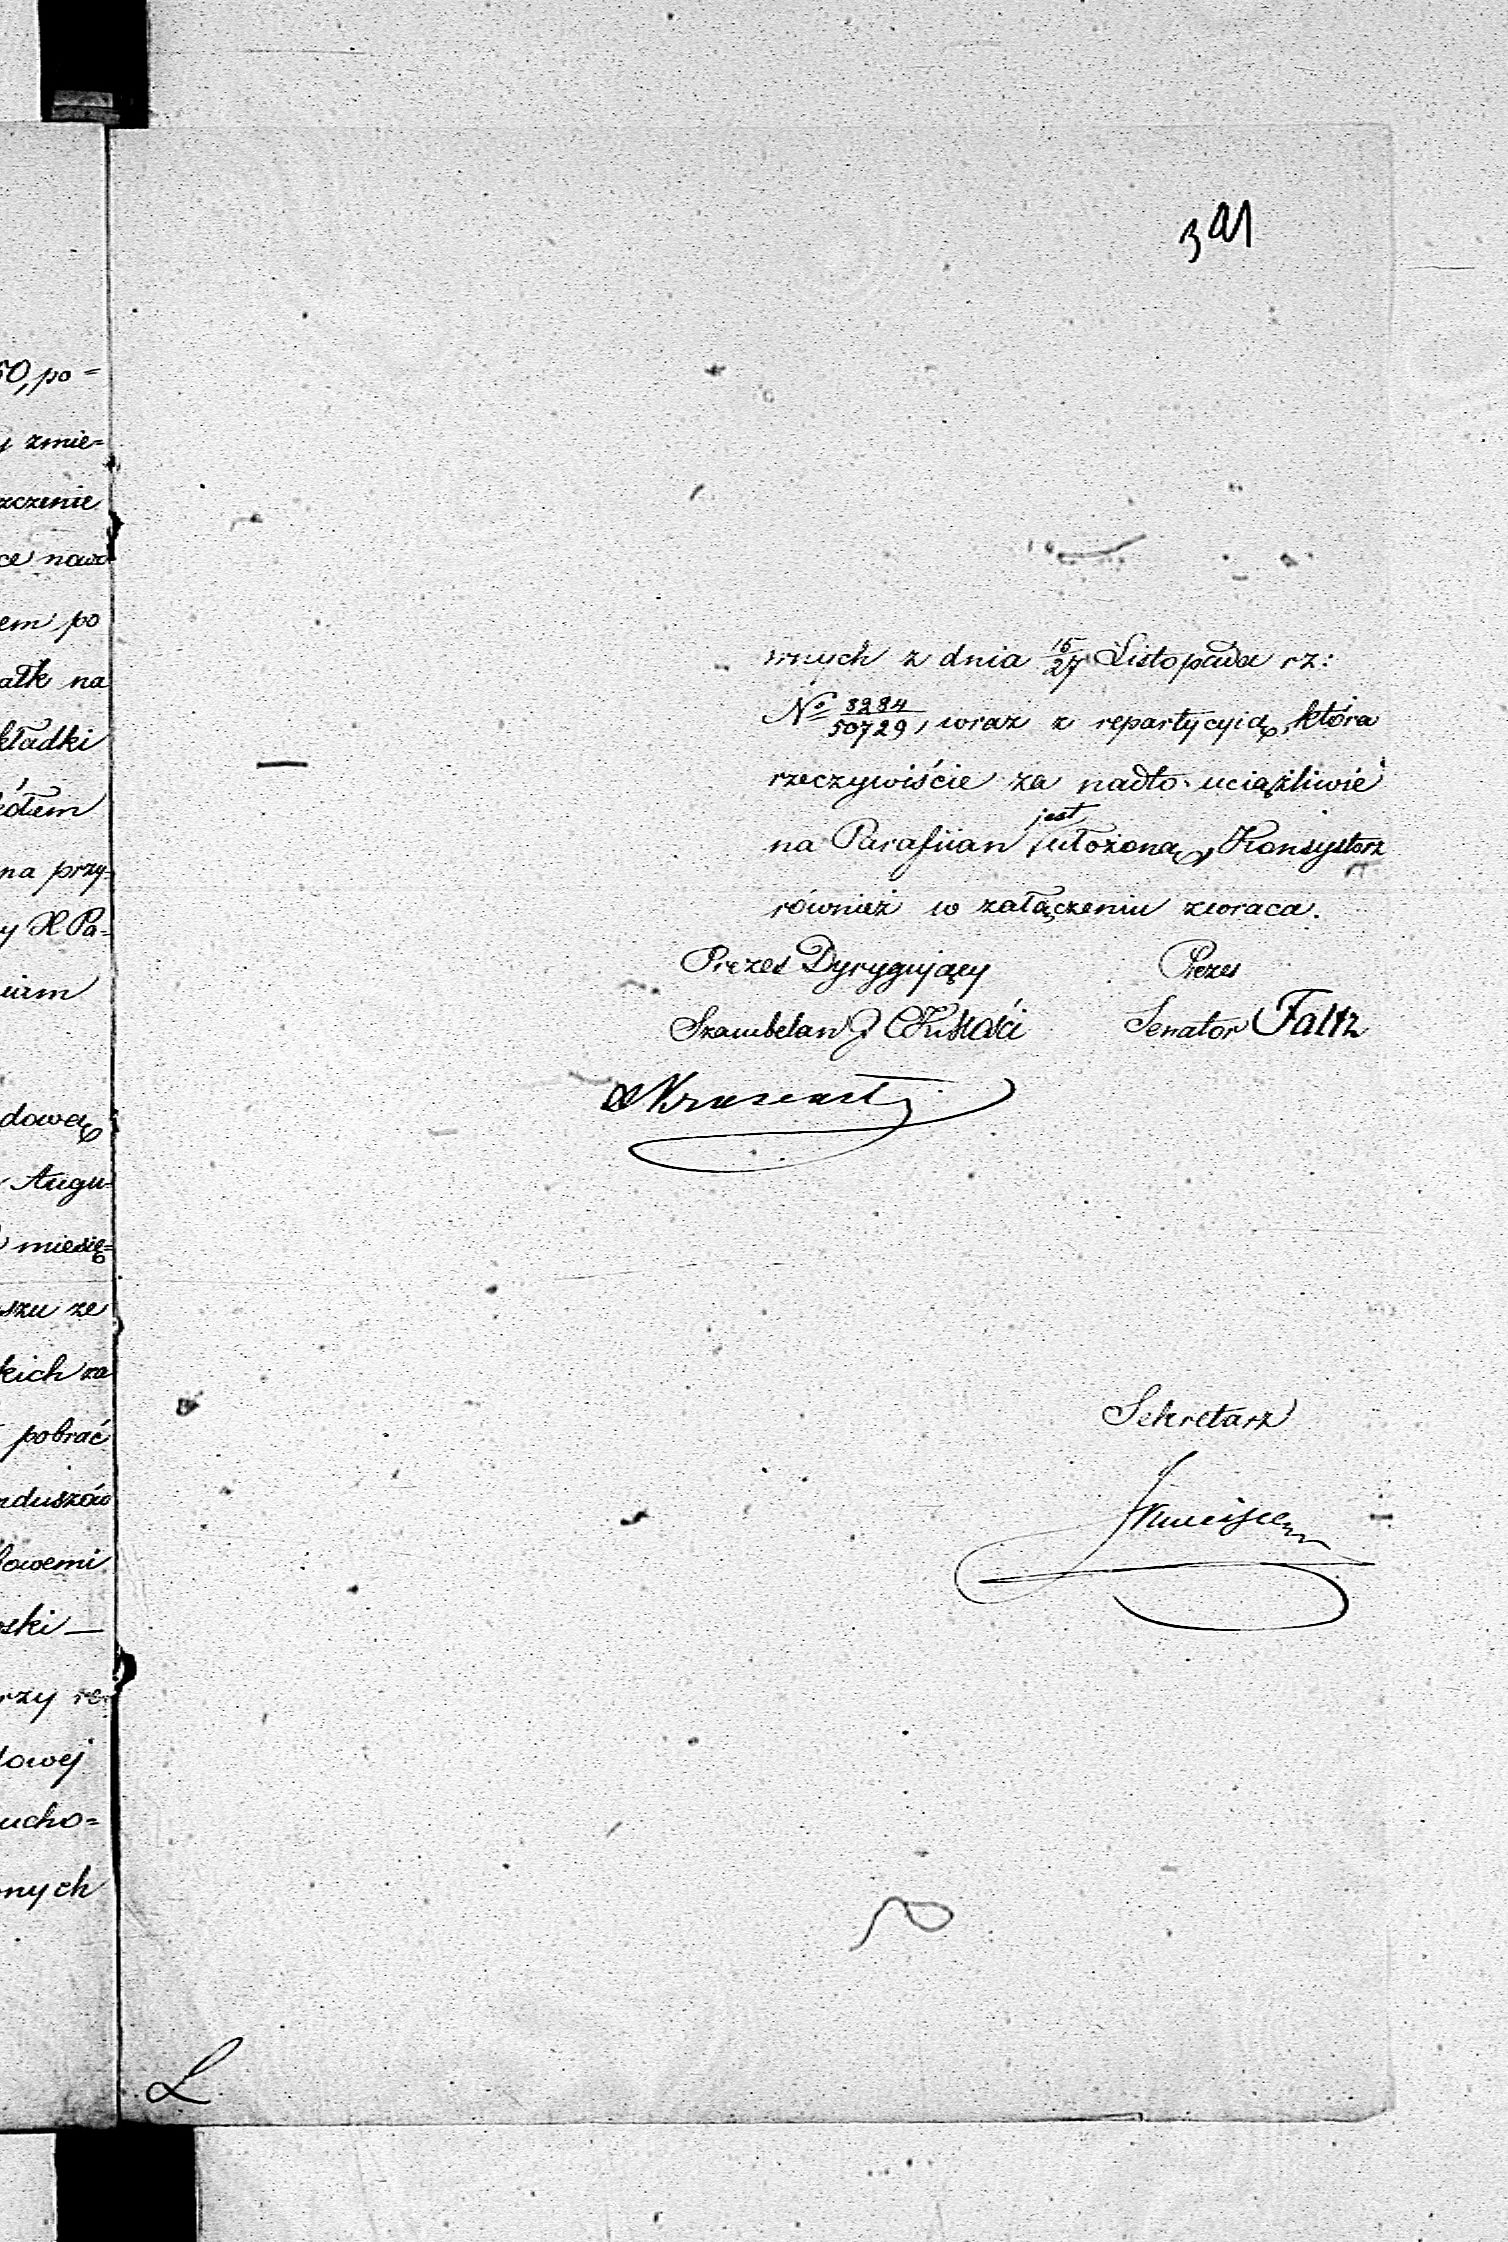 321
50, po=
zmie=
szczenie
ce nawe
em po
ałk na
kładki
na przy=
y X Pa=
dową
Augu=
miesię=
szu ze
kich za
pobrać
nduszów
łowemi
ski —
rzy re=
dowej
ucho=
nych
wnych z dnia 15/27 Listopada rz:
No 8284/50729, wraz z repartycyią, która
rzeczywiście za nadto uciążliwie
na Parafiian jest ułożoną, Konsystorz
również w załączeniu zwraca.
Prezes Dyrygujący Prezes
Szambelan J Senator Faltz
Sekretarz
L